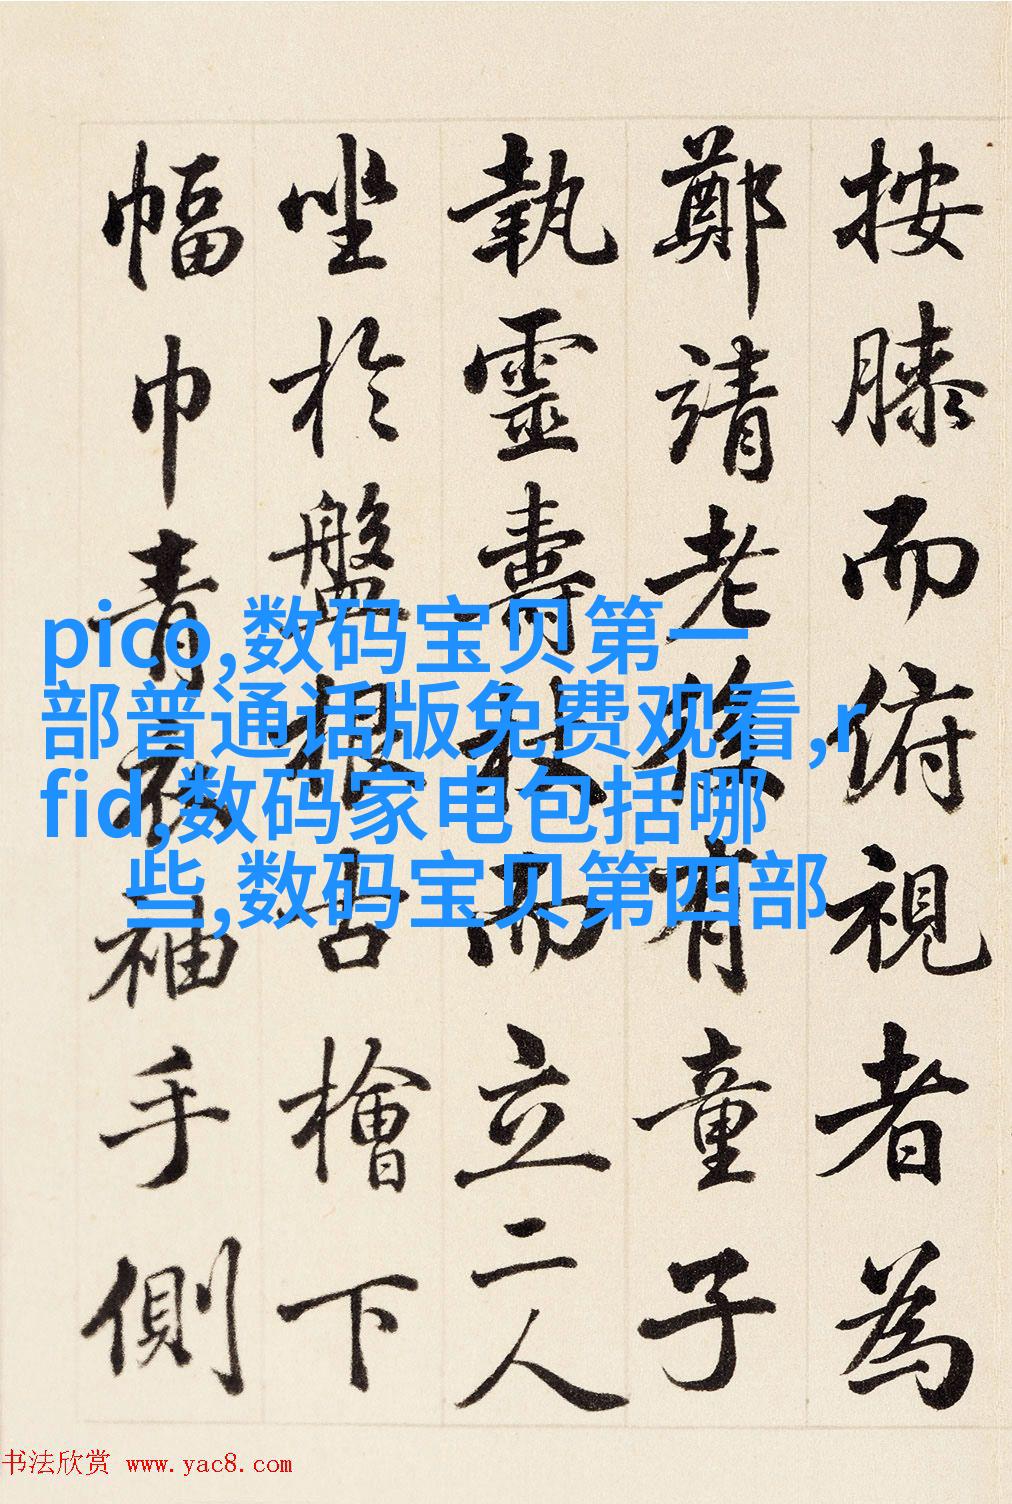 按膝而俯視者為
鄭靖老後有童子
執靈壽杖而立二人
坐於盤根古檜下
幅巾青衣袖手側
pico,数码宝贝第一
部普通话版免费观看,r
fid,数码家电包括哪
些,数码宝贝第四部
书法欣赏 www.yac8.com